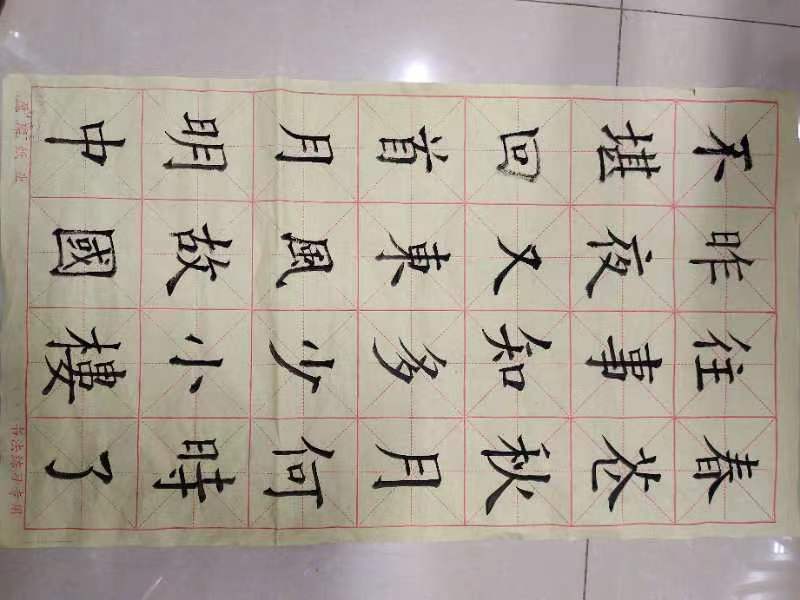 春花秋月何時了
往事知多少小樓
昨夜又東風故國
不堪回首月明中
书法练习专用